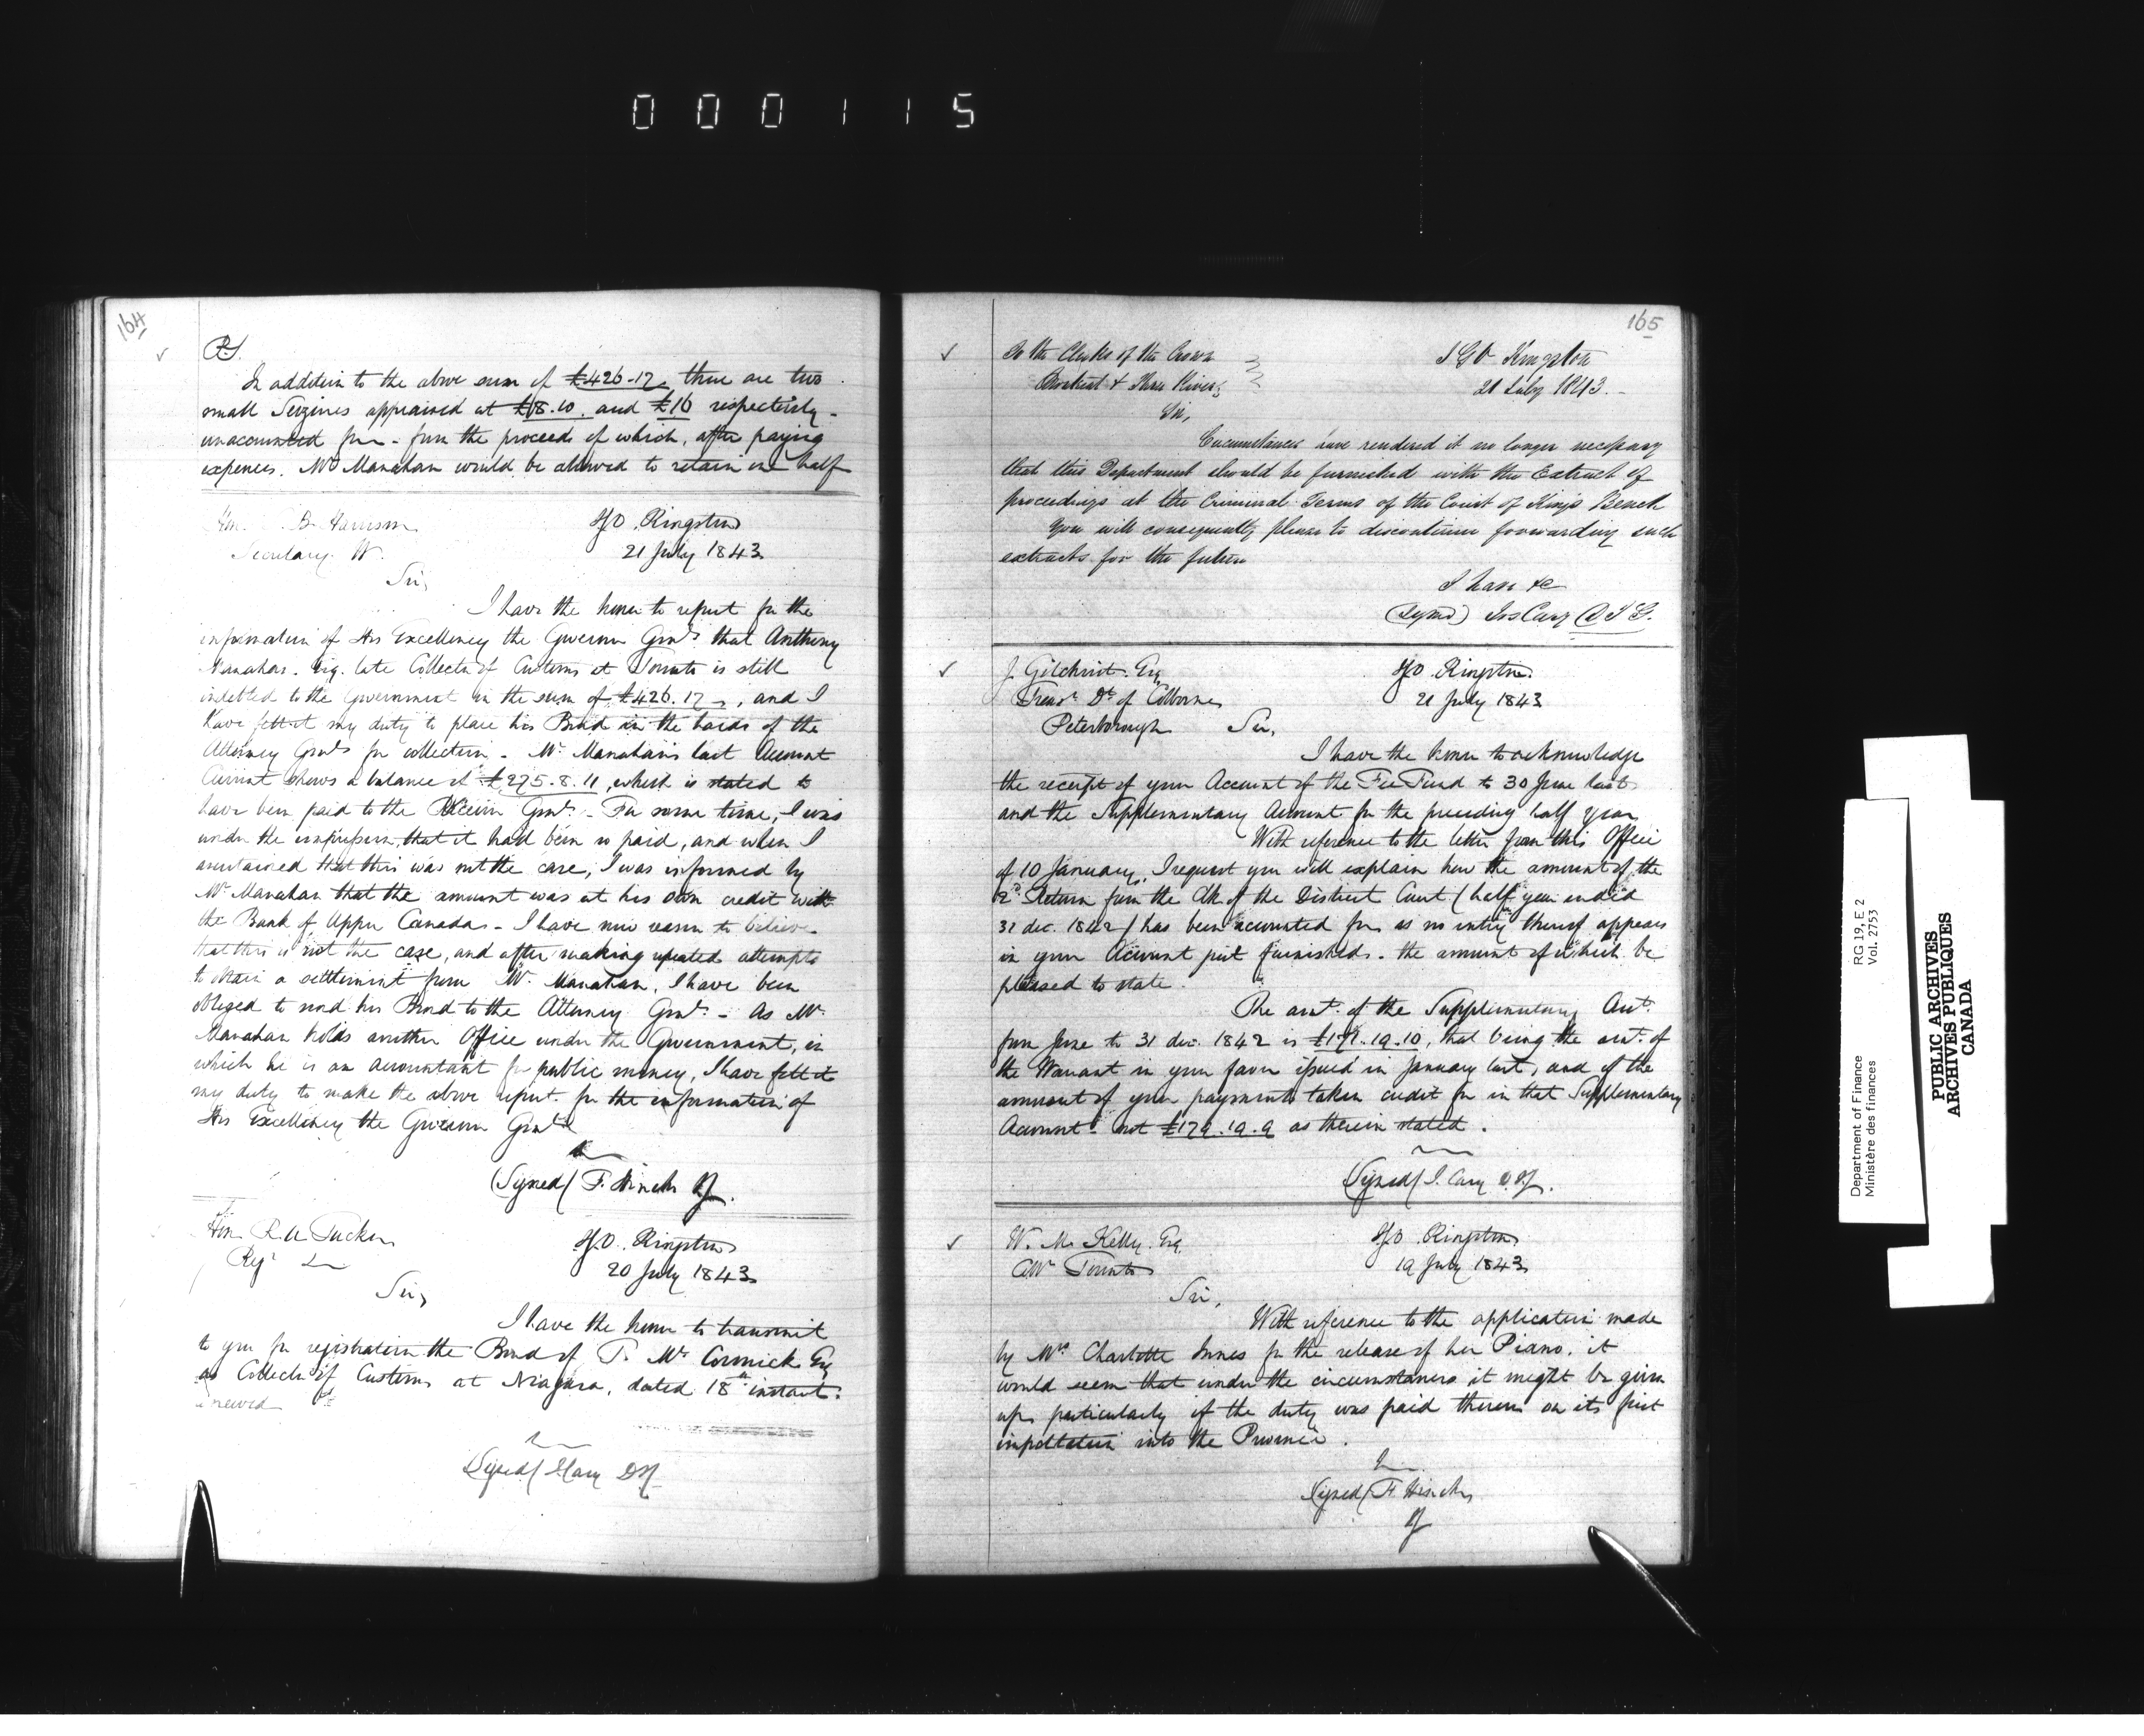 000115
164
P.S.
In addition to the above sum of £426.17. there are two
small Seizures appraised at £18.10. and £16 respectively -
unaccounted for - from the proceeds of which, after paying
expences. Mr Manahan would be allowed to retain one half
Hon. S. B. Harrison
Secretary W.
I.G.O. Kingston
21 July 1843
Sir,
I have the honor to report for the
information of His Excellency the Governor Genl. that Anthony
Manahan. Esq. late Collector of Customs at Toronto is still
indebted to the Government in the sum of £426.17 -, and I
have felt it my duty to place his Bond in the hands of the
Attorney Genl. for collection - Mr. Manahan's last Account
Current shews a balance of £275.8.11, which is stated to
have been paid to the Receiver Genl. - For some time, I was
under the impression, that it had been so paid, and when I
ascertained that this was not the case, I was informed by
Mr Manahan that the amount was at his own credit with
the Bank of Upper Canada - I have now reason to believe
that this is not the case, and after making repeated attempts
to obtain a settlement from Mr. Manahan, I have been
obliged to send his Bond to the Attorney Genl. - As Mr.
Manahan holds another Office under the Government, in
which he is an accountant for public money, I have felt it
my duty to make the above report. for the information of
His Excellency the Governor Genl.
(Signed) F. Hincks IG.
Hon. R. A. Tucker
Regr
I.G.O. Kingston
20 July 1843
Sir,
I have the honor to transmit
to you for registration the Bond of T. McCormick Esq
as Collector of Customs at Niagara, dated 18th instant.
renewed
Signed/ J Cary DIG
165
To the Clerks of the Crown
Montreal & Three Rivers
I G O Kingston
21 July 1843. -
Sir,
Circumstances have rendered it no longer necessary
that this Department should be furnished with the Extract of
proceedings at the Criminal Terms of the Court of King's Bench
You will consequently please to discontinue forwarding such
extracts for the future
I have &c
(Signed) Jos Cary D I G.
J. Gilchrist. Esq
Treasr. Dt. of Colborne
Peterborough
I.G.O. Kingston.
21 July 1843
Sir,
I have the honor to acknowledge
the receipt of your Account of the Fee Fund to 30 June last
and the Supplementary Account for the preceding half year
With reference to the letter from this Office
of 10 January, I request you will explain how the amount of the
2d. Return from the Clk of the District Court (half year ended
31 dec. 1842) has been accounted for as no entry thereof appears
in your Account just furnished. the amount of which be
pleased to state.
The amt. of the Supplementary Acct.
from June to 31 dec. 1842 is £171.19.10, that being the amt. of
the Warrant in your favor issued in January last, and of the
amount of your payments taken credit for in that Supplementary
Account - not £179.19.9 as therein stated.
(Signed/ J. Cary DIG.
W. M. Kelly. Esq
Toronto
I.G.O. Kingston
19 July 1843
Sir,
With reference to the application made
by Mrs. Charlotte Innes for the release of her Piano, it
would seem that under the circumstances it might be given
up, particularly if the duty was paid thereon on its first
importation into the Province.
Signed/ F. Hincks
IG
Department of Finance
Ministère des finances
RG 19, E 2
Vol. 2753
PUBLIC ARCHIVES
ARCHIVES PUBLIQUES
CANADA